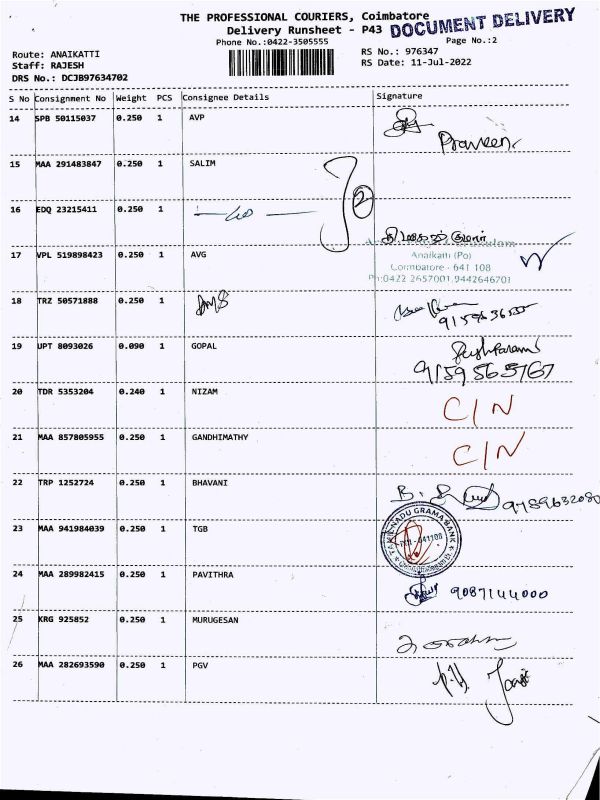 THE PROFESSIONAL COURIERS, Coimbatore
Delivery Runsheet - P43
DOCUMENT DELIVERY
Phone No.:0422-3505555
Page No.:2
Route: ANAIKATTI
RS No.: 976347
Staff: RAJESH
RS Date: 11-Jul-2022
DRS No.: DCJB97634702
S No Consignment No Weight PCS Consignee Details Signature
14 SPB 50115037 0.250 1 AVP
Praveen.
15 MAA 291483847 0.250 1 SALIM
2
16 EDQ 23215411 0.250 1
17 VPL 519898423 0.250 1 AVG
Anaikatti (Po)
Coimbatore - 641 108
Ph:0422 2657001,9442646701
18 TRZ 50571888 0.250 1
19 UPT 8093026 0.090 1 GOPAL
9159565767
20 TDR 5353204 0.240 1 NIZAM
C/N
21 MAA 857805955 0.250 1 GANDHIMATHY
C/N
22 TRP 1252724 0.250 1 BHAVANI
9789632080
23 MAA 941984039 0.250 1 TGB
TAMIL NADU GRAMA BANK
24 MAA 289982415 0.250 1 PAVITHRA
9087144000
25 KRG 925852 0.250 1 MURUGESAN
26 MAA 282693590 0.250 1 PGV